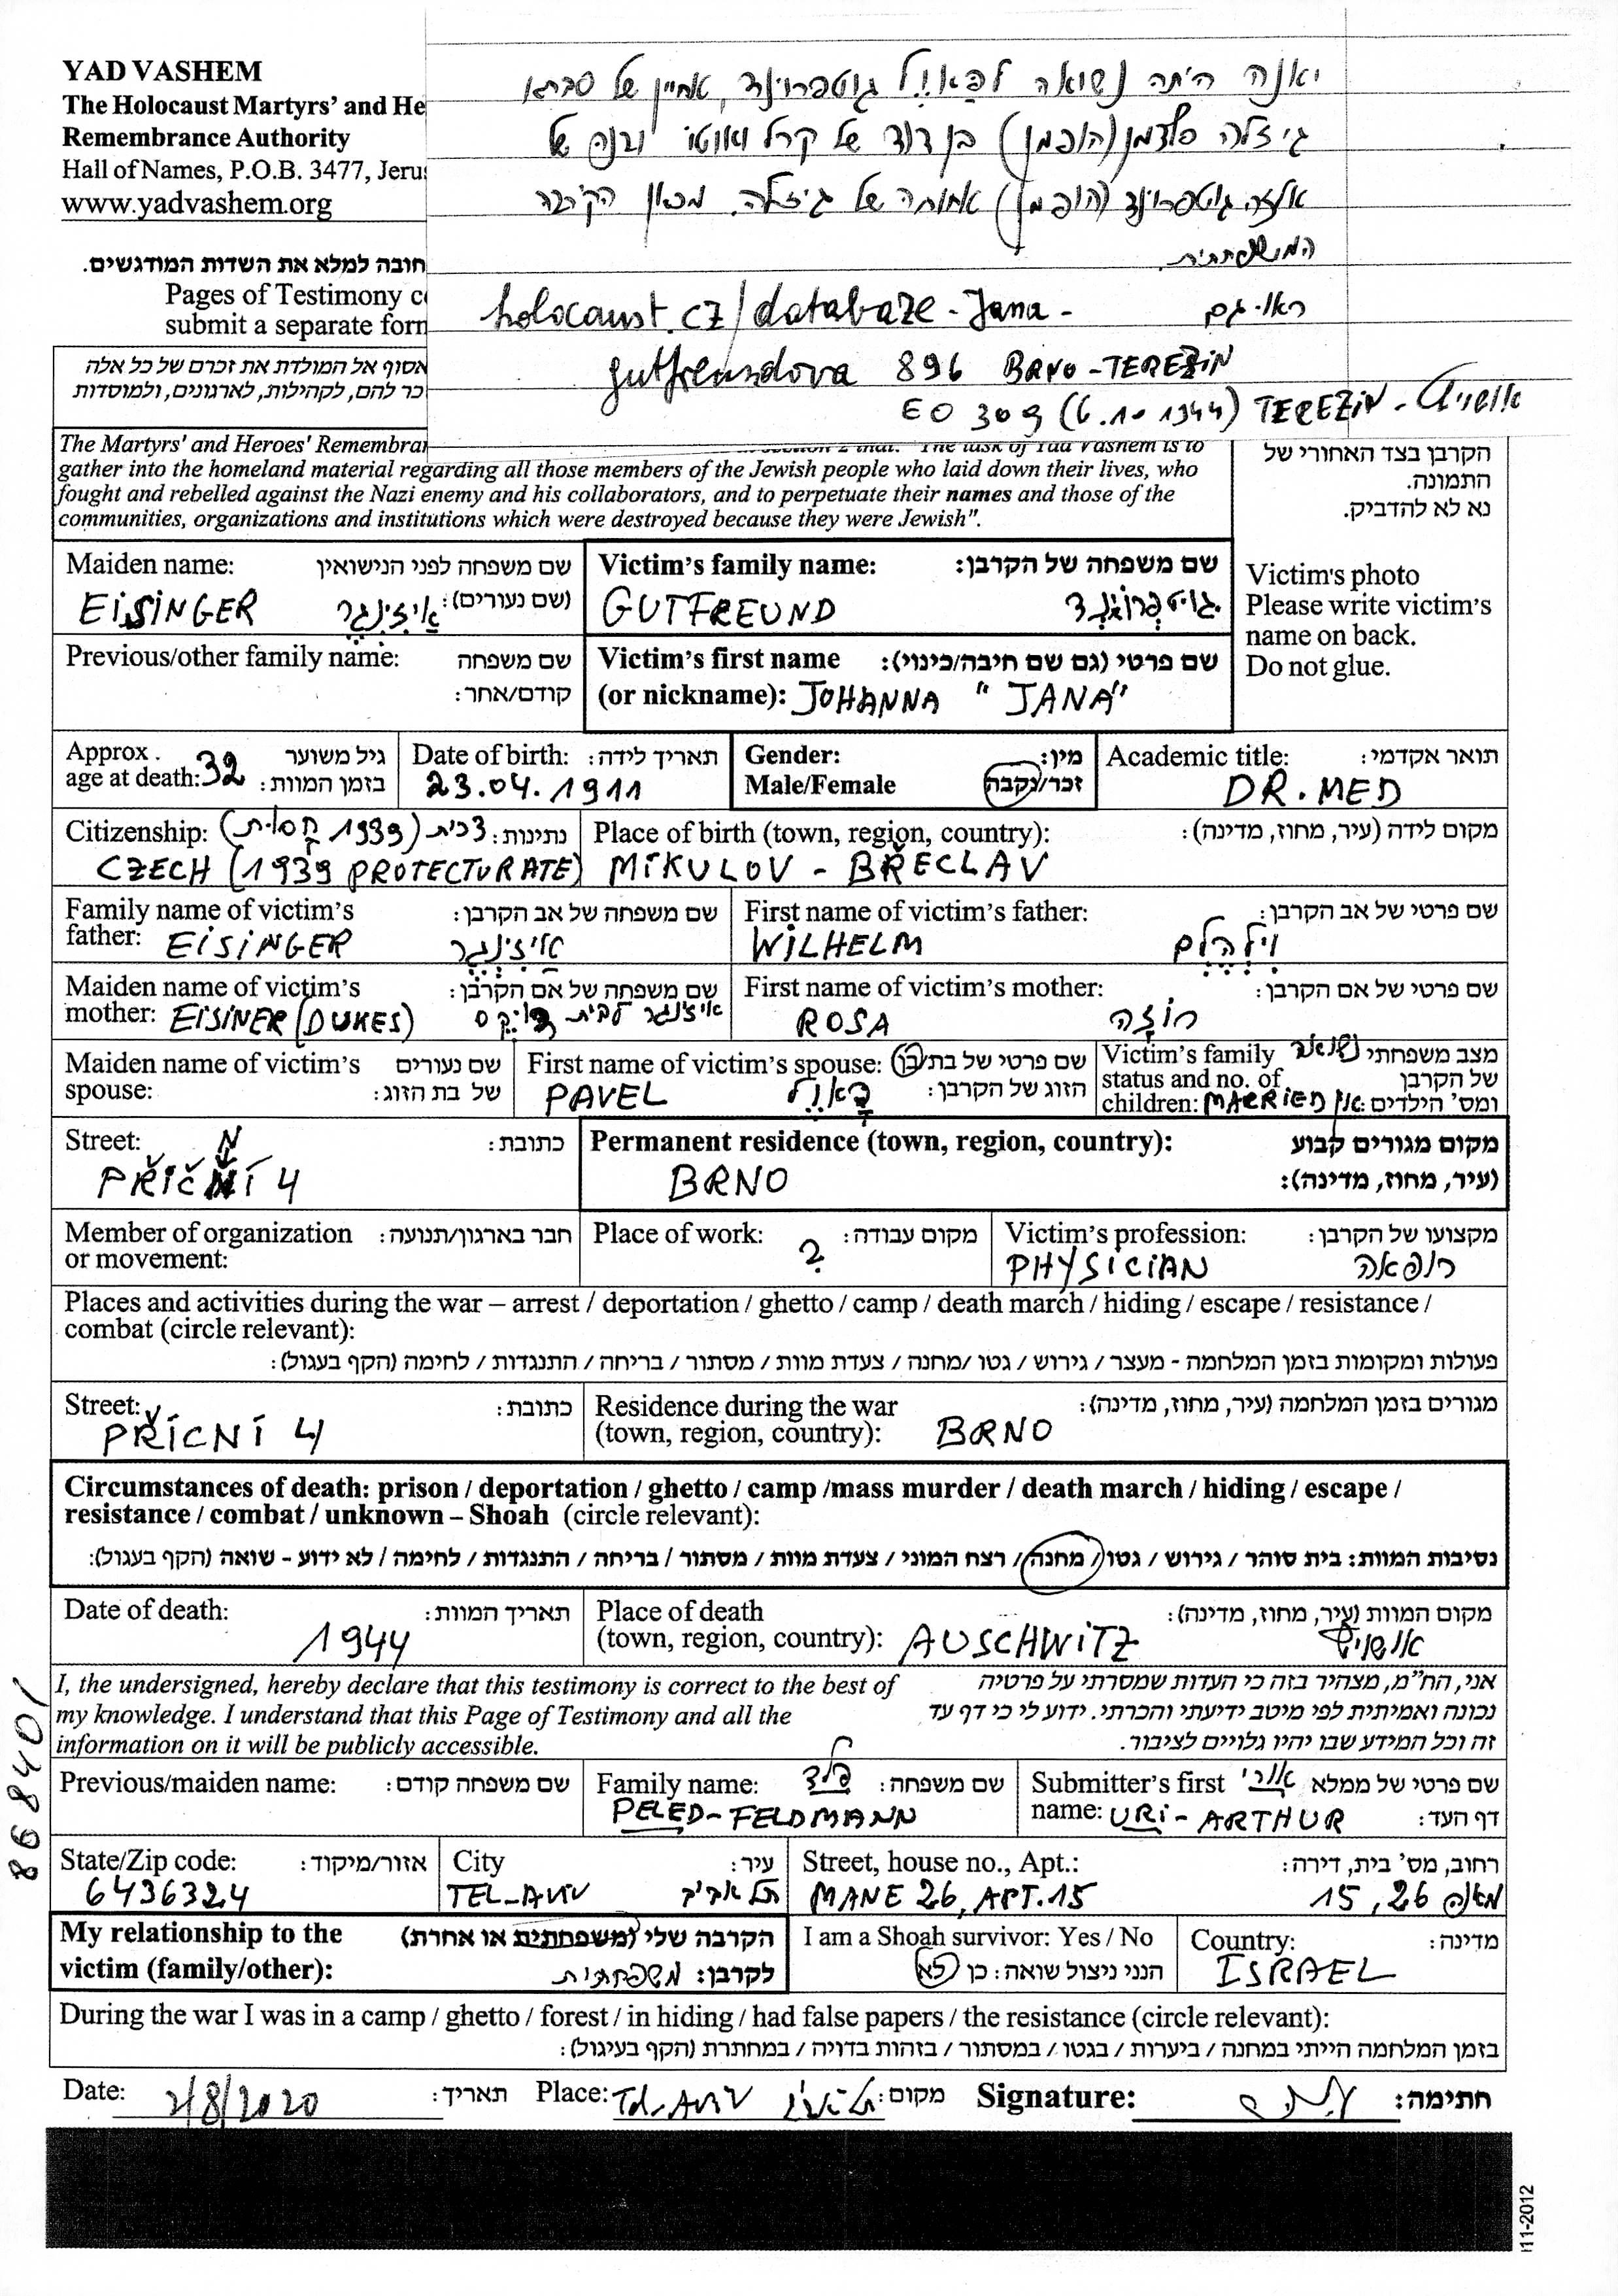 YAD VASHEM
The Holocaust Martyrs' and He
Remembrance Authority
Hall of Names, P.O.B. 3477, Jeru
www.yadvashem.org
יאנה היתה נשואה לפאול גוטפרוינד, אחיין של סבתנו
גיזלה פלדמן (הופמן) בן דוד של קרל ואוטו ובנה של
אלזה גוטפרוינד (הופמן) אחותה של גיזלה. מכאן הקירבה
המשפחתית.
ראו גם holocaust.cz/databaze-Jana-
gutfreundova 896 BRNO-TEREZIN
EO 309 (6.10 1944) TEREZIN - אושוויץ
חובה למלא את השדות המודגשים.
Pages of Testimony c
submit a separate forn
אסוף אל המולדת את זכרם של כל אלה
כר להם, לקהילות, לארגונים, ולמוסדות
The Martyrs' and Heroes' Remembran section 2 that: "The task of Yad Vashem is to
gather into the homeland material regarding all those members of the Jewish people who laid down their lives, who
fought and rebelled against the Nazi enemy and his collaborators, and to perpetuate their names and those of the
communities, organizations and institutions which were destroyed because they were Jewish".
הקרבן בצד האחורי של
התמונה.
נא לא להדביק.
Victim's photo
Please write victim's
name on back.
Do not glue.
Maiden name: שם משפחה לפני הנישואין
(שם נעורים):
EISINGER אַיזִינְגֶר
Victim's family name: שם משפחה של הקרבן:
GUTFREUND גוּטפְרוֹינְד
Previous/other family name: שם משפחה
קודם/אחר:
Victim's first name שם פרטי (גם שם חיבה/כינוי):
(or nickname): JOHANNA "JANA"
Approx. גיל משוער
age at death: 32 בזמן המוות:
Date of birth: תאריך לידה:
23.04.1911
Gender: מין:
Male/Female זכר/נקבה
Academic title: תואר אקדמי:
DR. MED
Citizenship: נתינות: צ'כית (1939 חסות)
CZECH (1939 PROTECTURATE)
Place of birth (town, region, country): מקום לידה (עיר, מחוז, מדינה):
MIKULOV - BŘECLAV
Family name of victim's שם משפחה של אב הקרבן:
father: EISINGER אייזינגר
First name of victim's father: שם פרטי של אב הקרבן:
WILHELM וילהלם
Maiden name of victim's שם משפחה של אם הקרבן:
mother: EISINER (DUKES) איזינגר לבית דוקס
First name of victim's mother: שם פרטי של אם הקרבן:
ROSA רוזה
Maiden name of victim's שם נעורים
spouse: של בת הזוג:
First name of victim's spouse: שם פרטי של בת/בן
הזוג של הקרבן:
PAVEL פאול
Victim's family מצב משפחתי נשואה
status and no. of של הקרבן
children: MARRIED ומס' הילדים: אין
Street: כתובת:
N
PŘÍČNÍ 4
Permanent residence (town, region, country): מקום מגורים קבוע
(עיר, מחוז, מדינה):
BRNO
Member of organization חבר בארגון/תנועה:
or movement:
Place of work: מקום עבודה:
?
Victim's profession: מקצועו של הקרבן:
PHYSICIAN רופאה
Places and activities during the war – arrest / deportation / ghetto / camp / death march / hiding / escape / resistance /
combat (circle relevant):
פעולות ומקומות בזמן המלחמה - מעצר / גירוש / גטו /מחנה / צעדת מוות / מסתור / בריחה / התנגדות / לחימה (הקף בעגול):
Street: כתובת:
PŘÍCNÍ 4
Residence during the war מגורים בזמן המלחמה (עיר, מחוז, מדינה):
(town, region, country): BRNO
Circumstances of death: prison / deportation / ghetto / camp /mass murder / death march / hiding / escape /
resistance / combat / unknown – Shoah (circle relevant):
נסיבות המוות: בית סוהר / גירוש / גטו / מחנה / רצח המוני / צעדת מוות / מסתור / בריחה / התנגדות / לחימה / לא ידוע - שואה (הקף בעגול):
Date of death: תאריך המוות:
1944
Place of death מקום המוות (עיר, מחוז, מדינה):
(town, region, country): AUSCHWITZ אושוויץ
I, the undersigned, hereby declare that this testimony is correct to the best of
my knowledge. I understand that this Page of Testimony and all the
information on it will be publicly accessible.
אני, הח"מ, מצהיר בזה כי העדות שמסרתי על פרטיה
נכונה ואמיתית לפי מיטב ידיעתי והכרתי. ידוע לי כי דף עד
זה וכל המידע שבו יהיו גלויים לציבור.
868401
Previous/maiden name: שם משפחה קודם:
Family name: שם משפחה: פלד
PELED-FELDMANN
Submitter's first שם פרטי של ממלא אורי
name: URI-ARTHUR דף העד:
State/Zip code: אזור/מיקוד:
6436324
City עיר:
TEL-AVIV תל אביב
Street, house no., Apt.: רחוב, מס' בית, דירה:
MANE 26, APT.15 מאנה 26, 15
My relationship to the הקרבה שלי (משפחתית או אחרת)
victim (family/other): לקרבן: משפחתית
I am a Shoah survivor: Yes / No
הנני ניצול שואה: כן / לא
Country: מדינה:
ISRAEL
During the war I was in a camp / ghetto / forest / in hiding / had false papers / the resistance (circle relevant):
בזמן המלחמה הייתי במחנה / ביערות / בגטו / במסתור / בזהות בדויה / במחתרת (הקף בעיגול):
Date: 2/8/2020 תאריך: Place: Tel-AVIV תל אביב מקום: Signature: חתימה:
011-2012